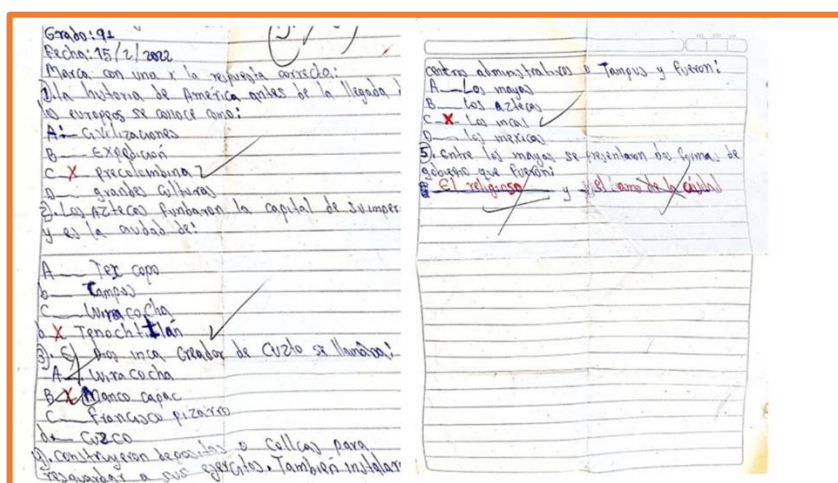 Grado: 91
Fecha: 15/2/2022
Marca con una x la respuesta correcta:
1) La historia de América antes de la llegada d
los europeos se conoce como:
A: Civilizaciones
B Expedición
C X precolombina
D grandes culturas
2). Los Aztecas fundaron la capital de su imper
y es la ciudad de:
A Tex copo
b Tampus
C Wiracocha
D X Tenochtitlán
3). El Dios inca creador de Cuzto se llamaba:
A Wiracocha
B X Manco capac
C Francisco pizarro
d Cuzco
4). Construyeron depositos o collcas para
resguardar a sus ejercitos. También instalar
centros administrativos o Tampus y fueron:
A Los mayas
B Los Aztecas
C X Los incas
D los mexicas
5). Entre los mayas se presentaron dos formas de
gobierno que fueron:
El religioso y el amo de la ciudad